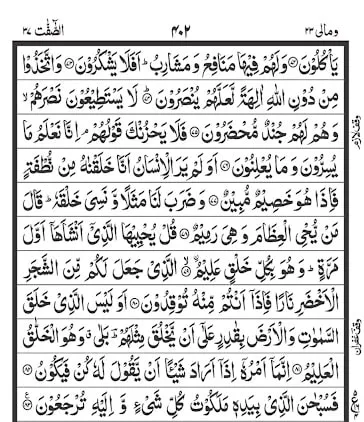 ومالی ۲۳ ۴۰۲ الصّٰٓفّٰت ۳۷
یَاۡكُلُوۡنَ ﴿۷۲﴾ وَلَهُمۡ فِیۡهَا مَنَافِعُ وَمَشَارِبُ ؕ اَفَلَا یَشۡكُرُوۡنَ ﴿۷۳﴾ وَاتَّخَذُوۡا
مِنۡ دُوۡنِ اللّٰهِ اٰلِهَةً لَّعَلَّهُمۡ یُنۡصَرُوۡنَ ﴿۷۴﴾ لَا یَسۡتَطِیۡعُوۡنَ نَصۡرَهُمۡ ۙ
وَهُمۡ لَهُمۡ جُنۡدٌ مُّحۡضَرُوۡنَ ﴿۷۵﴾ فَلَا یَحۡزُنۡكَ قَوۡلُهُمۡ ۘ اِنَّا نَعۡلَمُ مَا
یُسِرُّوۡنَ وَمَا یُعۡلِنُوۡنَ ﴿۷۶﴾ اَوَلَمۡ یَرَ الۡاِنۡسَانُ اَنَّا خَلَقۡنٰهُ مِنۡ نُّطۡفَةٍ
فَاِذَا هُوَ خَصِیۡمٌ مُّبِیۡنٌ ﴿۷۷﴾ وَضَرَبَ لَنَا مَثَلًا وَّنَسِیَ خَلۡقَهٗ ؕ قَالَ
مَنۡ یُّحۡیِ الۡعِظَامَ وَهِیَ رَمِیۡمٌ ﴿۷۸﴾ قُلۡ یُحۡیِیۡهَا الَّذِیۡۤ اَنۡشَاَهَاۤ اَوَّلَ
مَرَّةٍ ؕ وَهُوَ بِكُلِّ خَلۡقٍ عَلِیۡمٌ ﴿۷۹﴾ الَّذِیۡ جَعَلَ لَكُمۡ مِّنَ الشَّجَرِ
الۡاَخۡضَرِ نَارًا فَاِذَاۤ اَنۡتُمۡ مِّنۡهُ تُوۡقِدُوۡنَ ﴿۸۰﴾ اَوَلَیۡسَ الَّذِیۡ خَلَقَ
السَّمٰوٰتِ وَالۡاَرۡضَ بِقٰدِرٍ عَلٰۤی اَنۡ یَّخۡلُقَ مِثۡلَهُمۡ ؕ بَلٰی ۗ وَهُوَ الۡخَلّٰقُ
الۡعَلِیۡمُ ﴿۸۱﴾ اِنَّمَاۤ اَمۡرُهٗۤ اِذَاۤ اَرَادَ شَیۡـًٔا اَنۡ یَّقُوۡلَ لَهٗ كُنۡ فَیَكُوۡنُ ﴿۸۲﴾
فَسُبۡحٰنَ الَّذِیۡ بِیَدِهٖ مَلَكُوۡتُ كُلِّ شَیۡءٍ وَّاِلَیۡهِ تُرۡجَعُوۡنَ ﴿۸۳﴾
وقف لازم
وقف غفران